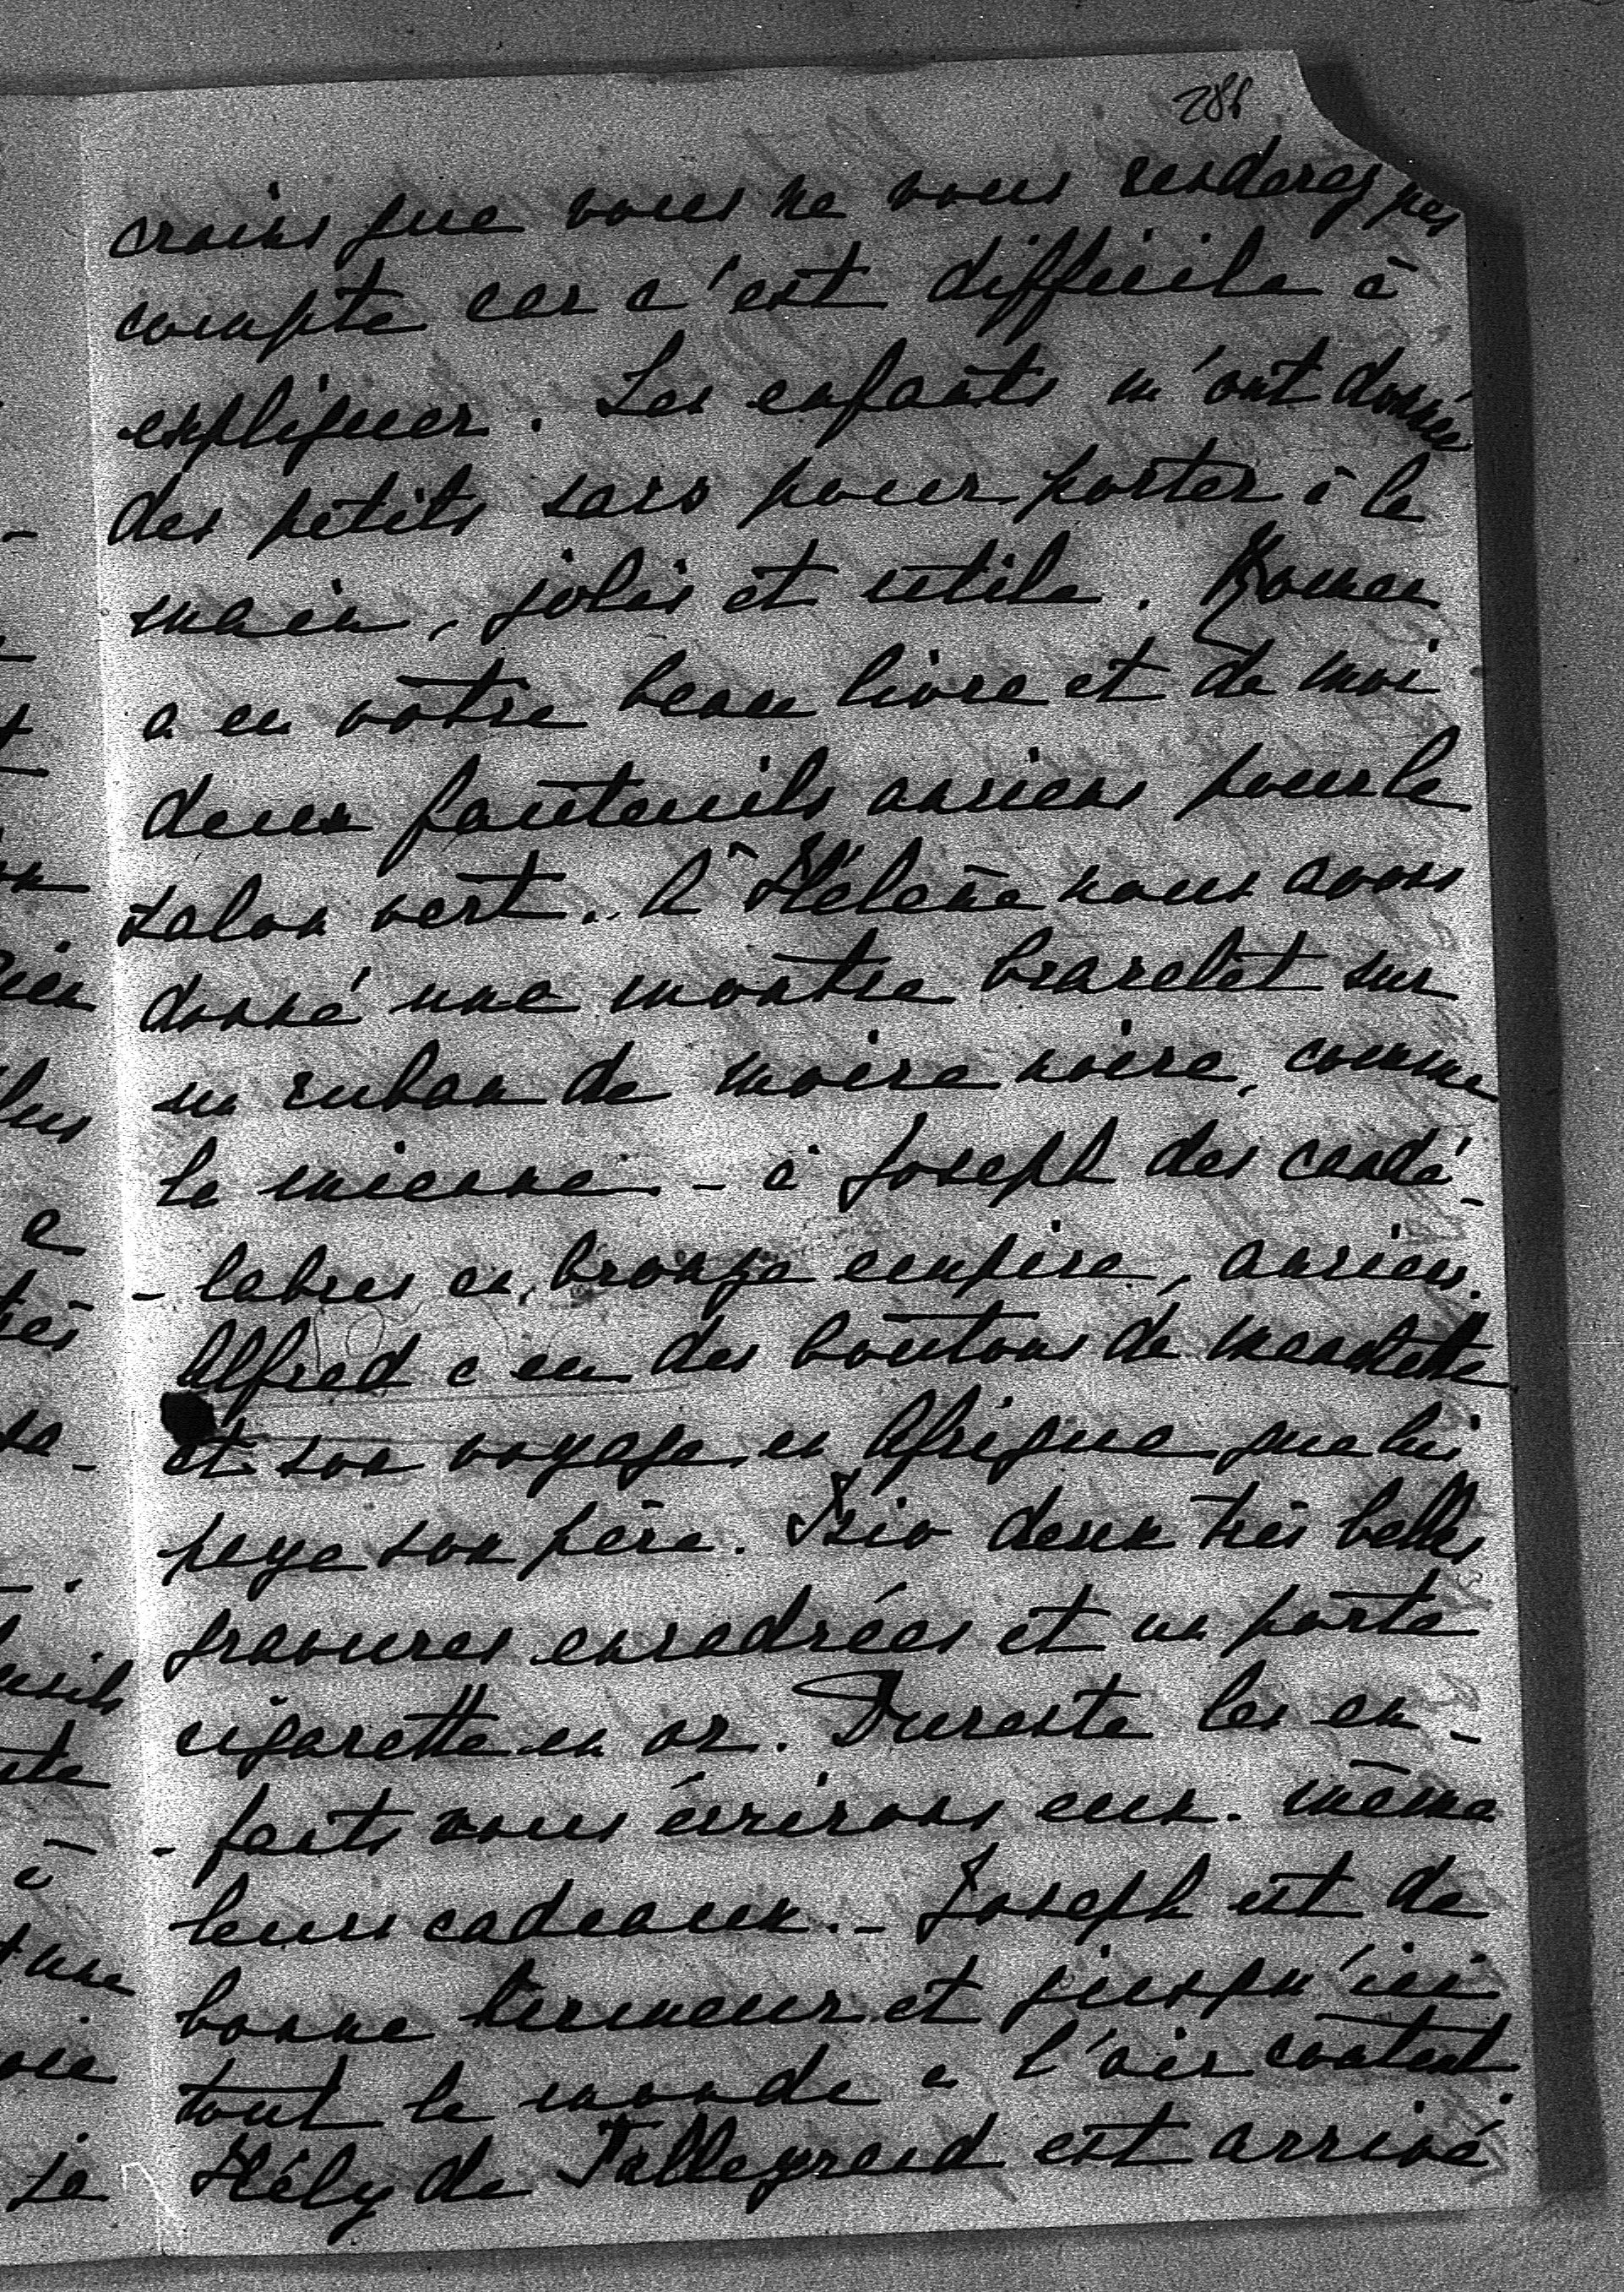 286
crains que vous ne vous renderez pas
compte car c'est difficile à
expliquer. Les enfants m'ont donné
des petits sacs pour porter à la
main, jolis et utile. Roman
a eu votre beau livre et de moi
deux fauteuils anciens pour le
salon vert. À Hélène nous avons
donné une montre bracelet sur
un ruban de moire noire, comme
la mienne - à Joseph des candé-
-labres en bronze empire, anciens.
Alfred a eu des boutons de manchette
et son voyage en Afrique que lui
paye son père. deux très belles
gravures encadrées et un porte
cigarette en or. Dureste les en-
-fants vous écrirons eux-même
leurs cadeaux. - Joseph est de
bonne humeur et jusqu'ici
tout le monde a l'air content.
Hély de Talleyrand est arrivé